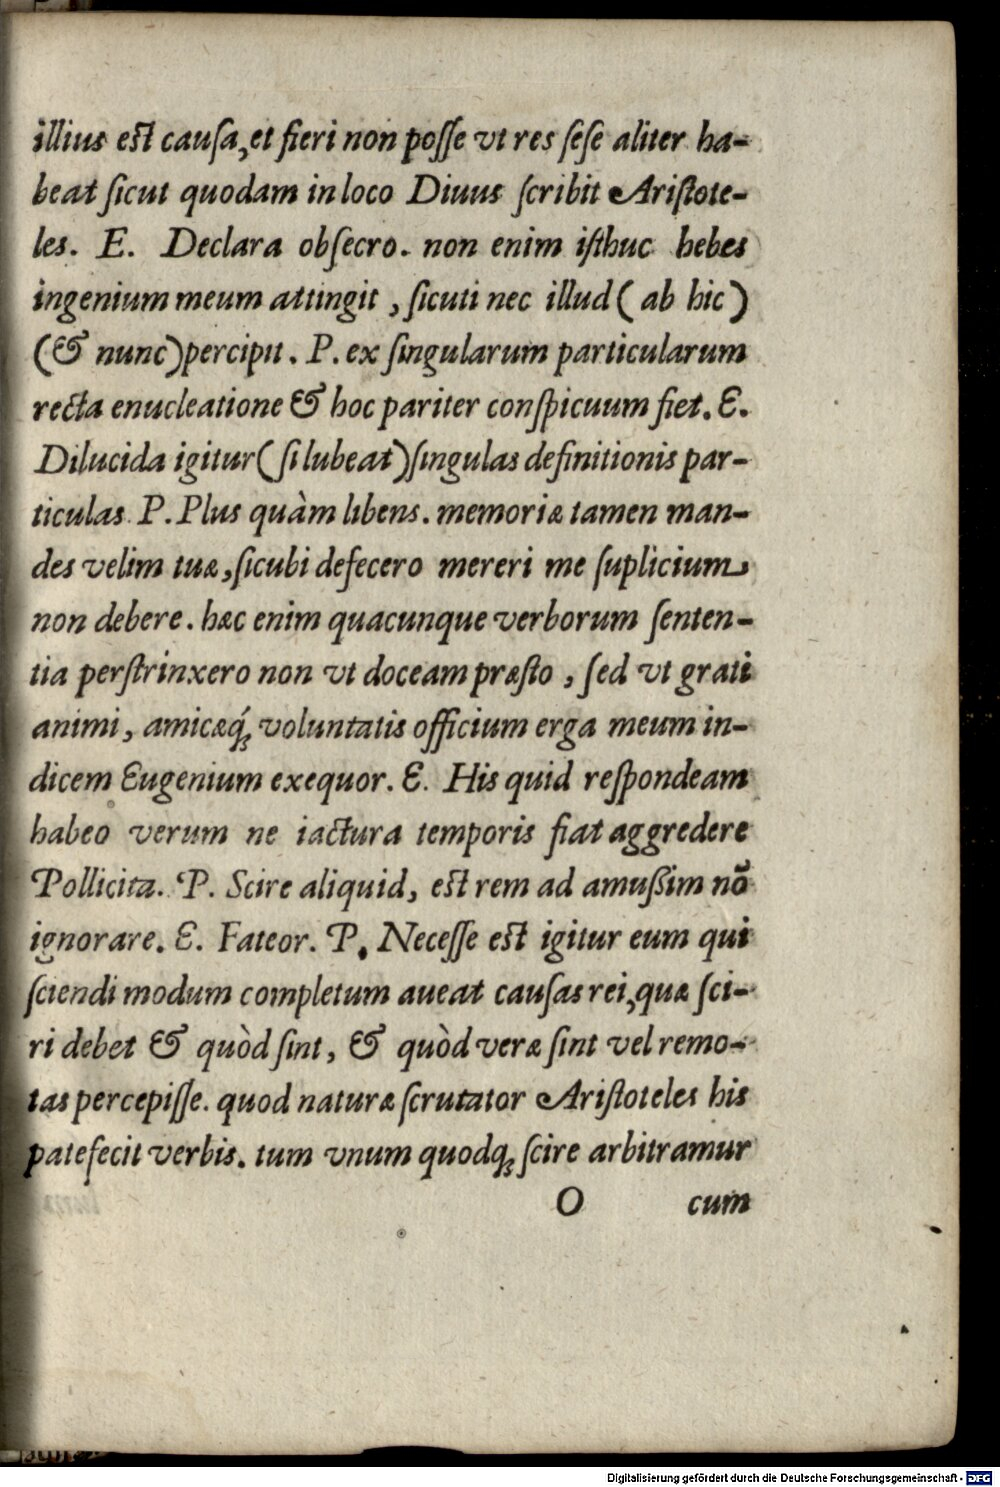 illius est causa, et fieri non posse vt res sese aliter ha-
beat sicut quodam in loco Diuus scribit Aristote-
les. E. Declara obsecro. non enim isthuc hebes
ingenium meum attingit, sicuti nec illud (ab hic)
(& nunc) percipit. P. ex singularum particularum
recta enucleatione & hoc pariter conspicuum fiet. E.
Dilucida igitur (si lubeat) singulas definitionis par-
ticulas P. Plus quàm libens. memoriæ tamen man-
des velim tuæ, sicubi defecero mereri me suplicium
non debere. hæc enim quacunque verborum senten-
tia perstrinxero non vt doceam præsto, sed vt grati
animi, amicæq́; voluntatis officium erga meum in-
dicem Eugenium exequor. E. His quid respondeam
habeo verum ne iactura temporis fiat aggredere
Pollicita. P. Scire aliquid, est rem ad amußim nō
ignorare. E. Fateor. P. Necesse est igitur eum qui
sciendi modum completum aueat causas rei, quæ sci-
ri debet & quòd sint, & quòd veræ sint vel remo-
tas percepisse. quod naturæ scrutator Aristoteles his
patefecit verbis. tum vnum quodq; scire arbitramur
O cum
Digitalisierung gefördert durch die Deutsche Forschungsgemeinschaft - DFG